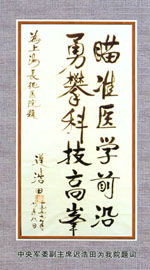 瞄准医学前沿
勇攀科技高峯
为上海長征医院题
迟浩田
中央军委副主席迟浩田为我院题词